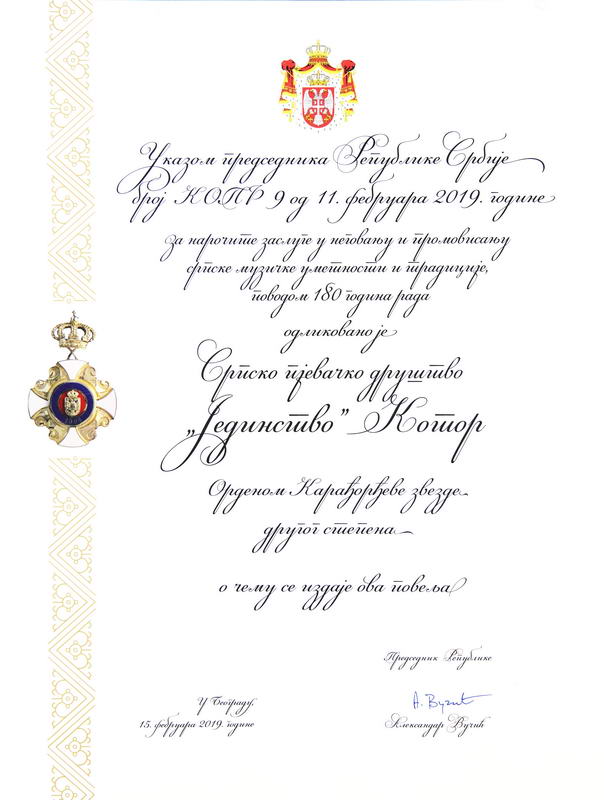 Указом председника Републике Србије
број КОПР 9 од 11. фебруара 2019. године
за нарочите заслуге у неговању и промовисању
српске музичке уметности и традиције,
поводом 180 година рада
одликовано је
Српско пјевачко друштво
„Јединство” Котор
Орденом Карађорђеве звезде
другог степена
о чему се издаје ова повеља
Председник Републике
У Београду,
15. фебруара 2019. године
А. Вучић
Александар Вучић